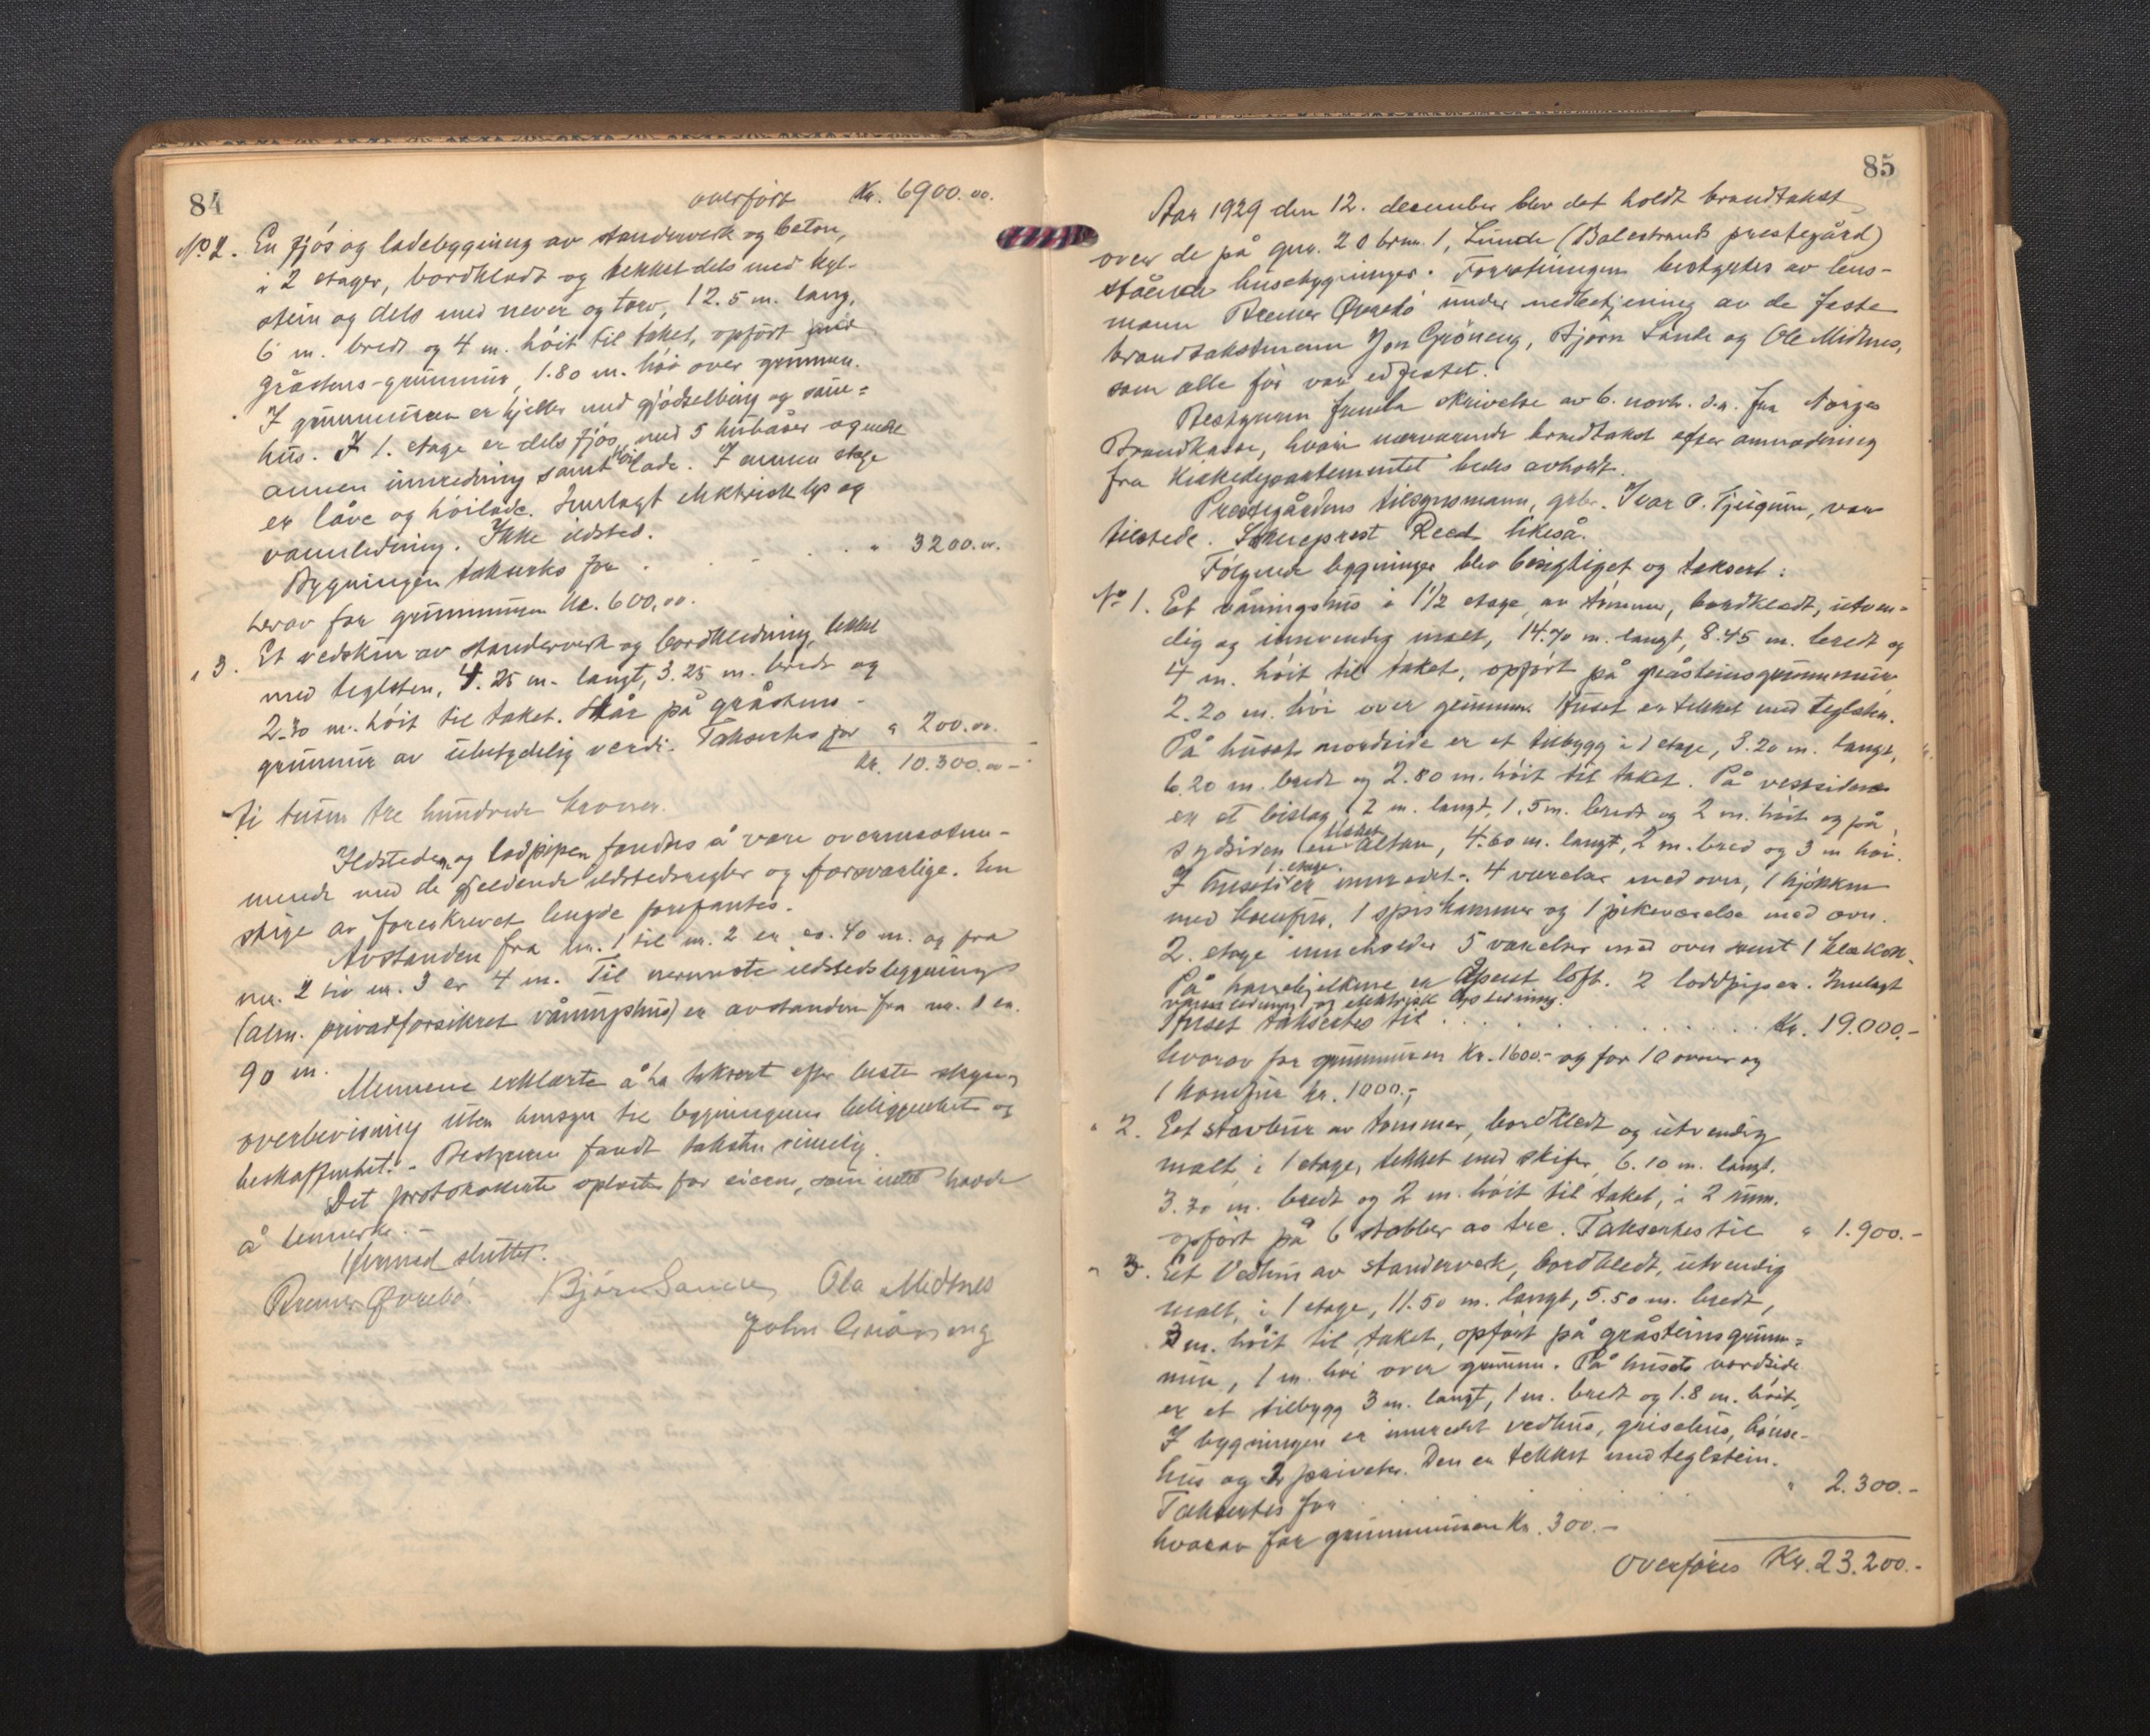 84
overført Kr. 6900.00.
No 2. En fjøs og ladebygging av standerverk og beton,
i 2 etager, bordkledt og tekket dels med tegl-
stein og dels med never og torv, 12.5 m. lang,
6 m. bredt og 4 m. høit til taket, opført på
gråstens-grunnmur, 1.80 m. høi over grunnen.
I grunnmuren er kjeller med gjødselbing og svine=
hus. I 1. etage er dels fjøs med 5 kubåser og
annen innredning samt høilade. I annen etage
er låve og høilade. Innlagt elektrisk lys og
vannledning. Ikke ildsted.
Bygningen takseres for . . . . " 3200.00.
herav for grunnmuren kr. 600,00.
" 3. Et vedskur av standerverk og bordkledning, tekket
med teglsten, 4.25 m. langt, 3.25 m. bredt og
2.30 m. høit til taket. Står på gråstens-
grunnmur av ubetydelig verdi. Takseres for " 200.00.
Kr. 10.300.00 -
ti tusen tre hundrede kroner.
Ildstedene og lodpipen fandtes å være overensstem-
mende med de gjeldende ildstedsregler og forsvarlige. En
stige av foreskrevet lengde forefantes.
Avstanden fra nr. 1 til nr. 2 er ca. 40 m. og fra
nr. 2 til nr. 3 er 4 m. Til nermeste ildstedsbygning
(alm. privatforsikret våningshus) er avstanden fra nr. 1 ca.
90 m.
Mennene erklærte å ha taksert efter beste skjøn og
overbevisning uten hensyn til bygningenes beliggenhet og
beskaffenhet. - Bestyreren fandt taksten rimelig.
Det protokollerte oplæstes for eieren, som intet hadde
å bemerke. -
Hermed sluttet.
Bremer Øvrebø. Bjørn Sande Ola Midtnes
John Grøneng
85
Aar 1929 den 12. december blev det holdt brandtakst
over de på gnr. 20 brnr. 1, Lunde (Balestrands prestegård)
stående husebygninger. Forretningen bestyrtes av lens-
mann Bremer Øvrebø under medbetjening av de faste
brandtakstmenn Jon Grøneng, Bjørn Sande og Ole Midtnes,
som alle før var edfestet.
Bestyreren fremla skrivelse av 6. novb. d.a. fra Norges
Brandkasse, hvori nærværende brandtakst efter anmodning
fra Kirkedepartementet bedes avholdt.
Prestegårdens tilsynsmann, grbr. Ivar O. Tjugum, var
tilstede. Sokneprest Reed likeså.
Følgende bygninger blev besigtiget og taksert:
No 1. Et våningshus i 1 1/2 etage av tømmer, bordkledt, utven-
dig og innvendig malt, 14.70 m. langt, 8.45 m. bredt og
4 m. høit til taket, opført på gråsteinsgrunnmur
2.20 m. høi over grunnen. Huset er tekket med teglsten.
På husets nordside er et tilbygg i 1 etage, 3.20 m. langt,
6.20 m. bredt og 2.80 m. høit til taket. På vestsiden
er et bislag, 2 m. langt, 1.5 m. bredt og 2 m. høit og på
sydsiden en altan, 4.60 m. langt, 2 m. bred og 3 m høi.
I husets 1. etage er innredet: 4 værelser med ovn, 1 kjøkken
med komfyr, 1 spiskammer og 1 pikeværelse med ovn.
2. etage inneholder 5 værelser med ovn samt 1
På hanebjelkene er åpent loft. 2 loddpiper. Innlagt
vannledning og elektrisk lysledning.
Huset takseres til . . . . . . . . Kr. 19.000.-
hvorav for grunnmuren Kr. 1600.- og for 10 ovner og
1 komfyr kr. 1000.-
" 2. Eet stavbur av tømmer, bordkledt og utvendig
malt, i 1 etage, tekket med skifer, 6.10 m. langt.
3.30 m. bredt og 2 m. høit til taket, i 2 rum.
opført på 6 stabber av tre. Takseres til " 1.900.-
" 3. Eet Vedhus av standerverk, bordkledt, utvendig
malt, i 1 etage, 11.50 m. langt, 5.50 m. bredt,
3 m. høit til taket, opført på gråsteinsgrunn=
mur, 1 m. høi over grunnen. På husets nordside
er et tilbygg 3 m. langt, 1 m. bredt og 1.8 m. høit,
I bygningen er innredet vedhus, grisehus, hønse-
hus og 2 priveter. Den er tekket med teglstein.
Takseres for . . . . . . " 2.300.-
hvorav for grunnmuren Kr. 300.-
Overføres Kr. 23.200.-